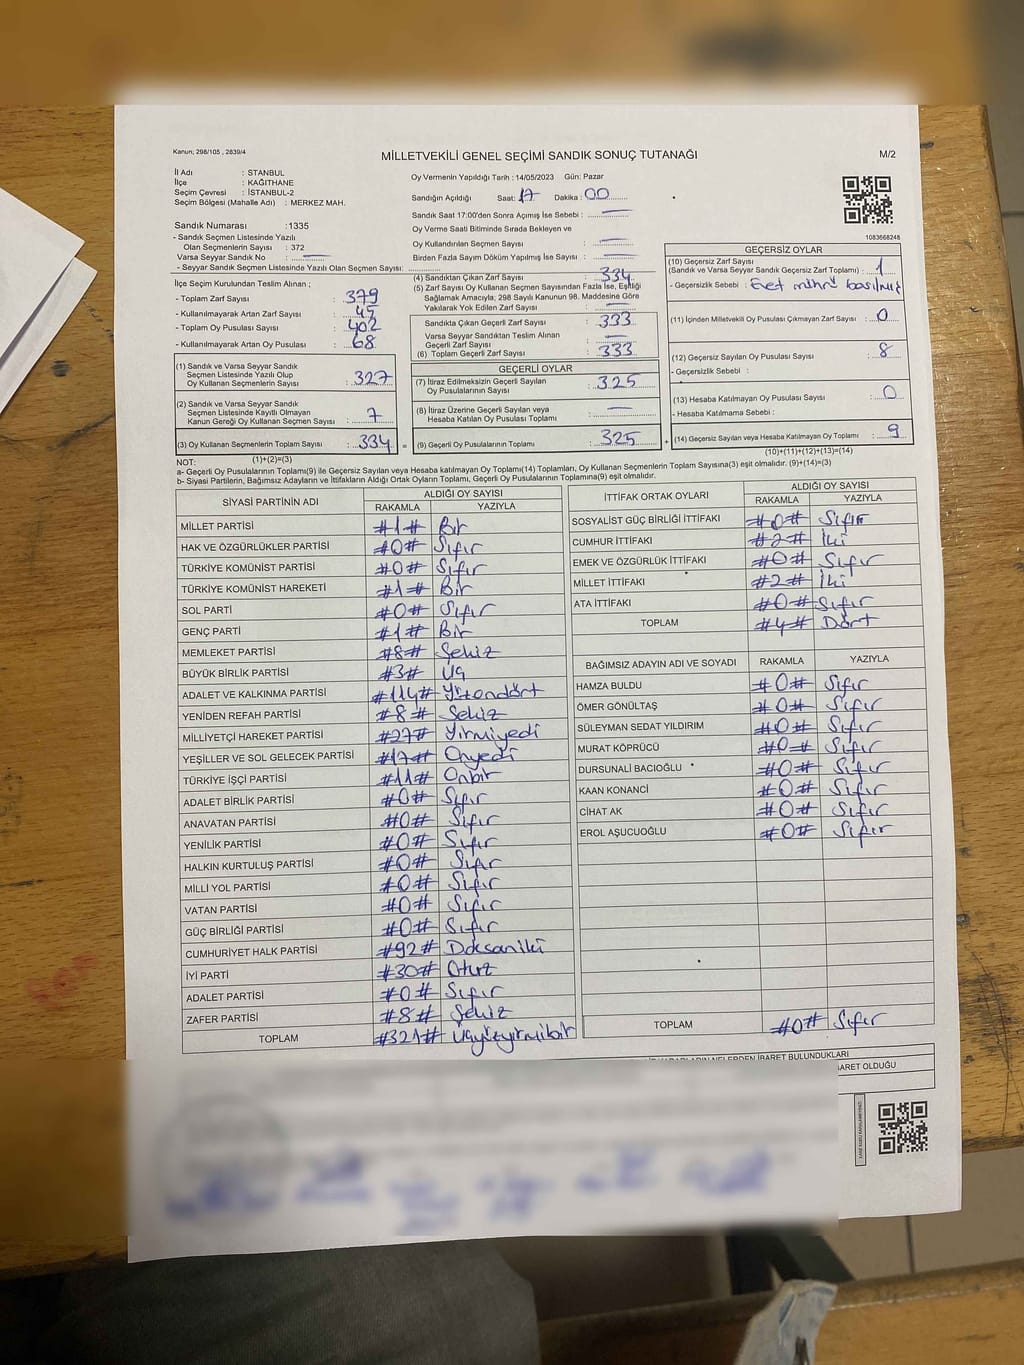 Kanun; 298/105 , 2839/4
MİLLETVEKİLİ GENEL SEÇİMİ SANDIK SONUÇ TUTANAĞI
M/2
İl Adı : STANBUL
İlçe : KAĞITHANE
Seçim Çevresi : İSTANBUL-2
Seçim Bölgesi (Mahalle Adı) : MERKEZ MAH.
Oy Vermenin Yapıldığı Tarih : 14/05/2023 Gün: Pazar
Sandığın Açıldığı Saat: 17 Dakika : 00
Sandık Saat 17:00'den Sonra Açımış İse Sebebi :
Oy Verme Saati Bitiminde Sırada Bekleyen ve
Oy Kullandırılan Seçmen Sayısı :
Birden Fazla Sayım Döküm Yapılmış İse Sayısı :
1083668248
Sandık Numarası :1335
- Sandık Seçmen Listesinde Yazılı
Olan Seçmenlerin Sayısı : 372
Varsa Seyyar Sandık No :
- Seyyar Sandık Seçmen Listesinde Yazılı Olan Seçmen Sayısı:
İlçe Seçim Kurulundan Teslim Alınan ;
- Toplam Zarf Sayısı : 379
- Kullanılmayarak Artan Zarf Sayısı : 45
- Toplam Oy Pusulası Sayısı : 402
- Kullanılmayarak Artan Oy Pusulası : 68
(1) Sandık ve Varsa Seyyar Sandık
Seçmen Listesinde Yazılı Olup
Oy Kullanan Seçmenlerin Sayısı : 327
(2) Sandık ve Varsa Seyyar Sandık
Seçmen Listesinde Kayıtlı Olmayan
Kanun Gereği Oy Kullanan Seçmen Sayısı : 7
(3) Oy Kullanan Seçmenlerin Toplam Sayısı : 334
(1)+(2)=(3)
(4) Sandıktan Çıkan Zarf Sayısı : 334
(5) Zarf Sayısı Oy Kullanan Seçmen Sayısından Fazla İse, Eşitliği
Sağlamak Amacıyla; 298 Sayılı Kanunun 98. Maddesine Göre
Yakılarak Yok Edilen Zarf Sayısı :
Sandıkta Çıkan Geçerli Zarf Sayısı : 333
Varsa Seyyar Sandıktan Teslim Alınan
Geçerli Zarf Sayısı :
(6) Toplam Geçerli Zarf Sayısı : 333
GEÇERLİ OYLAR
(7) İtiraz Edilmeksizin Geçerli Sayılan
Oy Pusulalarının Sayısı : 325
(8) İtiraz Üzerine Geçerli Sayılan veya
Hesaba Katılan Oy Pusulası Toplamı :
= (9) Geçerli Oy Pusulalarının Toplamı : 325
GEÇERSİZ OYLAR
(10) Geçersiz Zarf Sayısı
(Sandık ve Varsa Seyyar Sandık Geçersiz Zarf Toplamı) : 1
- Geçersizlik Sebebi : Evet mührü basılmış
(11) İçinden Milletvekili Oy Pusulası Çıkmayan Zarf Sayısı : 0
(12) Geçersiz Sayılan Oy Pusulası Sayısı : 8
- Geçersizlik Sebebi :
(13) Hesaba Katılmayan Oy Pusulası Sayısı : 0
- Hesaba Katılmama Sebebi :
+ (14) Geçersiz Sayılan veya Hesaba Katılmayan Oy Toplamı : 9
(10)+(11)+(12)+(13)=(14)
NOT:
a- Geçerli Oy Pusulalarının Toplamı(9) ile Geçersiz Sayılan veya Hesaba katılmayan Oy Toplamı(14) Toplamları, Oy Kullanan Seçmenlerin Toplam Sayısına(3) eşit olmalıdır. (9)+(14)=(3)
b- Siyasi Partilerin, Bağımsız Adayların ve İttifakların Aldığı Ortak Oyların Toplamı, Geçerli Oy Pusulalarının Toplamına(9) eşit olmalıdır.
SİYASİ PARTİNİN ADI
ALDIĞI OY SAYISI
RAKAMLA YAZIYLA
MİLLET PARTİSİ #1# Bir
HAK VE ÖZGÜRLÜKLER PARTİSİ #0# Sıfır
TÜRKİYE KOMÜNİST PARTİSİ #0# Sıfır
TÜRKİYE KOMÜNİST HAREKETİ #1# Bir
SOL PARTİ #0# Sıfır
GENÇ PARTİ #1# Bir
MEMLEKET PARTİSİ #8# Sekiz
BÜYÜK BİRLİK PARTİSİ #3# Üç
ADALET VE KALKINMA PARTİSİ #114# Yüzondört
YENİDEN REFAH PARTİSİ #8# Sekiz
MİLLİYETÇİ HAREKET PARTİSİ #27# Yirmiyedi
YEŞİLLER VE SOL GELECEK PARTİSİ #17# Onyedi
TÜRKİYE İŞÇİ PARTİSİ #11# Onbir
ADALET BİRLİK PARTİSİ #0# Sıfır
ANAVATAN PARTİSİ #0# Sıfır
YENİLİK PARTİSİ #0# Sıfır
HALKIN KURTULUŞ PARTİSİ #0# Sıfır
MİLLİ YOL PARTİSİ #0# Sıfır
VATAN PARTİSİ #0# Sıfır
GÜÇ BİRLİĞİ PARTİSİ #0# Sıfır
CUMHURİYET HALK PARTİSİ #92# Doksaniki
İYİ PARTİ #30# Otuz
ADALET PARTİSİ #0# Sıfır
ZAFER PARTİSİ #8# Sekiz
TOPLAM #321# Üçyüzyirmibir
İTTİFAK ORTAK OYLARI
ALDIĞI OY SAYISI
RAKAMLA YAZIYLA
SOSYALİST GÜÇ BİRLİĞİ İTTİFAKI #0# Sıfır
CUMHUR İTTİFAKI #2# İki
EMEK VE ÖZGÜRLÜK İTTİFAKI #0# Sıfır
MİLLET İTTİFAKI #2# İki
ATA İTTİFAKI #0# Sıfır
TOPLAM #4# Dört
BAĞIMSIZ ADAYIN ADI VE SOYADI RAKAMLA YAZIYLA
HAMZA BULDU #0# Sıfır
ÖMER GÖNÜLTAŞ #0# Sıfır
SÜLEYMAN SEDAT YILDIRIM #0# Sıfır
MURAT KÖPRÜCÜ #0# Sıfır
DURSUNALİ BACIOĞLU #0# Sıfır
KAAN KONANCİ #0# Sıfır
CİHAT AK #0# Sıfır
EROL AŞUCUOĞLU #0# Sıfır
TOPLAM #0# Sıfır
NELERDEN İBARET BULUNDUKLARI
OLDUĞU